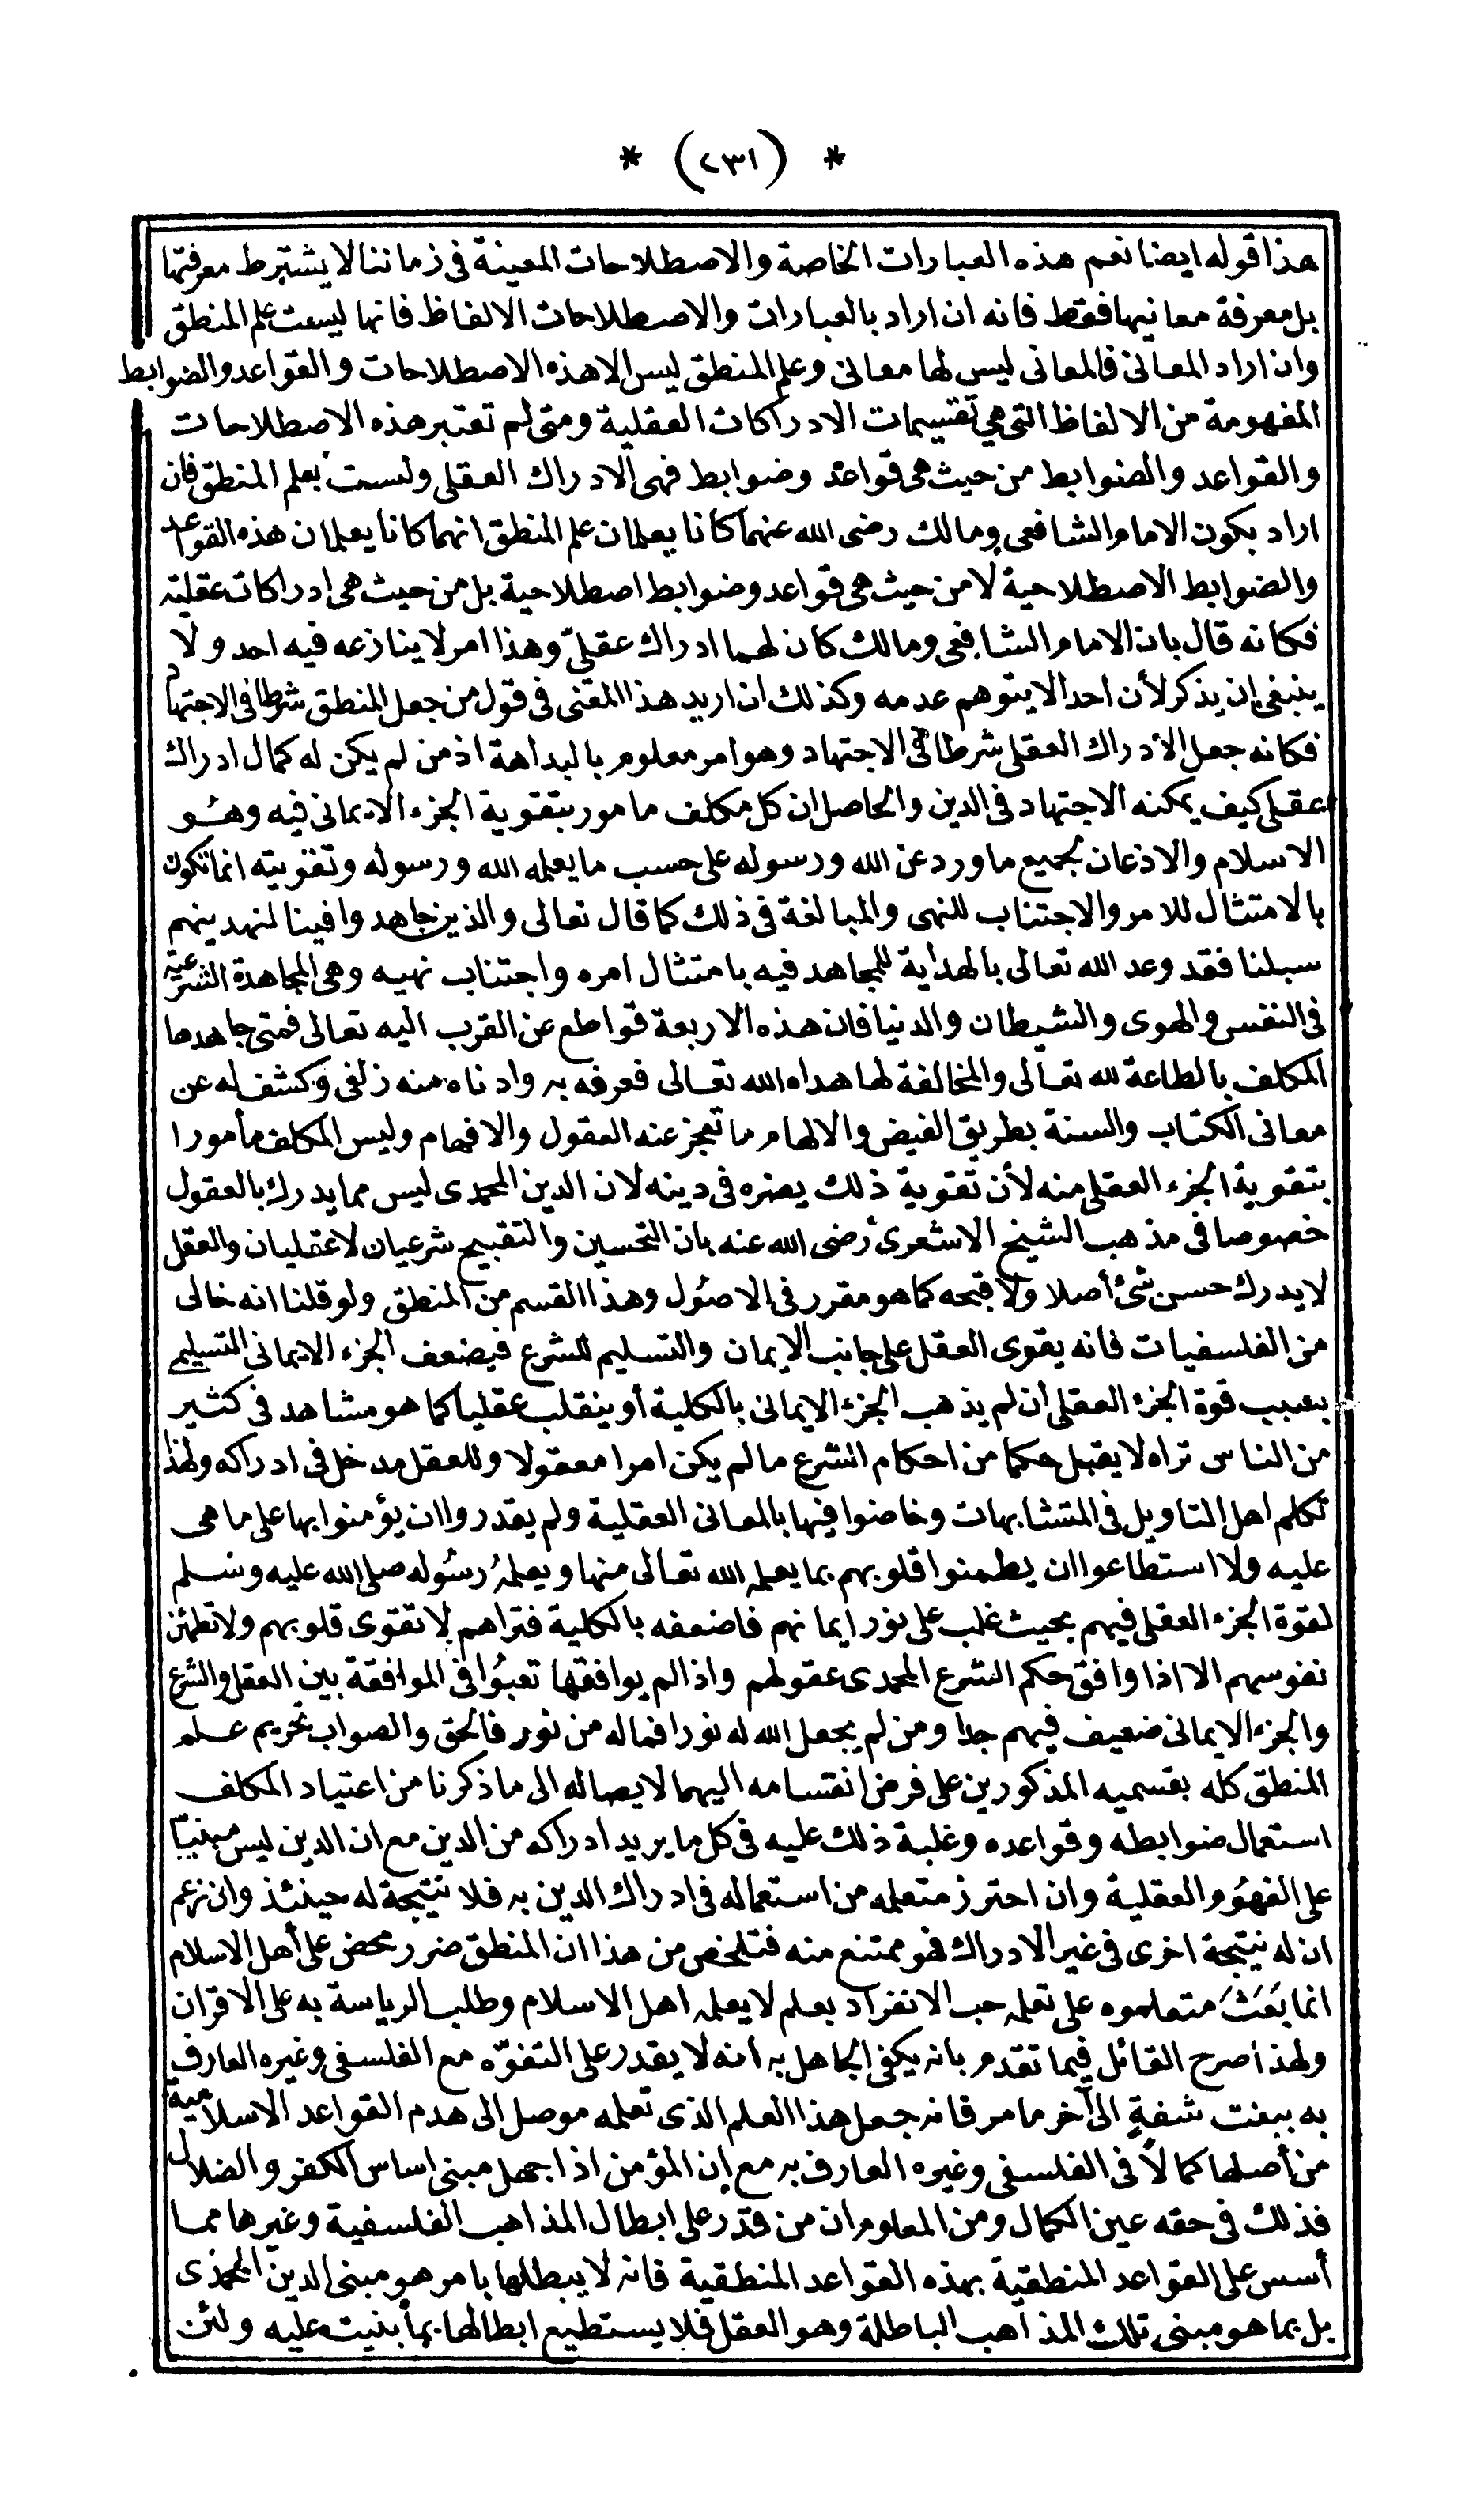 * (٢٣١) *
هذا قوله ايضا نعم هذه العبارات الخاصة والاصطلاحات المعينة فى زماننا لا يشترط معرفتها
بل معرفة معانيها فقط فانه ان اراد بالعبارات والاصطلاحات الالفاظ فانها ليست علم المنطق
وان اراد المعانى فالمعانى ليس لها معانى وعلم المنطق ليس الا هذه الاصطلاحات والقواعد والضوابط
المفهومة من الالفاظ التى هي تقسيمات الادراكات العقلية ومتى لم تعتبر هذه الاصطلاحات
والقواعد والضوابط من حيث هى قواعد وضوابط فهى الادراك العقلى وليست بعلم المنطق فان
اراد بكون الامام الشافعى ومالك رضى الله عنهما كانا يعلمان علم المنطق انهما كانا يعلمان هذه القواعد
والضوابط الاصطلاحية لا من حيث هى قواعد وضوابط اصطلاحية بل من حيث هى ادراكات عقلية
فكانه قال بان الامام الشافعى ومالك كان لهما ادراك عقلىّ وهذا امر لا ينازعه فيه احد ولا
ينبغى ان يذكر لأن احدا لا يتوهم عدمه وكذلك ان اريد هذا المعنى فى قول من جعل المنطق شرطا فى الاجتهاد
فكانه جعل الأدراك العقلى شرطا فى الاجتهاد وهو امر معلوم بالبداهة اذ من لم يكن له كمال ادراك
عقلى كيف يمكنه الاجتهاد فى الدين والحاصل ان كل مكلف مامور بتقوية الجزء الايمانى فيه وهو
الاسلام والاذعان بجميع ما ورد عن الله ورسوله على حسب ما يعلمه الله ورسوله وتقويته انما تكون
بالامتثال للامر والاجتناب للنهى والمبالغة فى ذلك كما قال تعالى والذين جاهدوا فينا لنهدينهم
سبلنا فقد وعد الله تعالى بالهداية للمجاهد فيه بامتثال امره واجتناب نهيه وهى المجاهدة الشرعية
فى النفس والهوى والشيطان والدنيا فان هذه الاربعة قواطع عن القرب اليه تعالى فمتى جاهدها
المكلف بالطاعة لله تعالى والمخالفة لها هداه الله تعالى فعرفه به وادناه منه زلفى وكشف له عن
معانى الكتاب والسنة بطريق الفيض والالهام ما تعجز عنه العقول والافهام وليس المكلف مأمورا
بتقوية الجزء العقلى منه لأن تقوية ذلك يضره فى دينه لان الدين المحمدى ليس مما يدرك بالعقول
خصوصا فى مذهب الشيخ الاشعرى رضى الله عنه بان التحسين والتقبيح شرعيان لا عقليان والعقل
لا يدرك حسن شئ أصلا ولا قبحه كما هو مقرر فى الاصول وهذا القسم من المنطق ولو قلنا انه خالى
من الفلسفيات فانه يقوى العقل على جانب الإيمان والتسليم للشرع فيضعف الجزء الايمانى التسليمى
بسبب قوة الجزء العقلى أن لم يذهب الجزء الايمانى بالكلية أو ينقلب عقليا كما هو مشاهد فى كثير
من الناس تراه لا يقبل حكما من احكام الشرع ما لم يكن امرا معقولا وللعقل مدخل فى ادراكه ولهذا
تكلم اهل التاويل فى المتشابهات وخاضوا فيها بالمعانى العقلية ولم يقدروا ان يؤمنوا بها على ما هى
عليه ولا استطاعوا ان يطمنوا قلوبهم بما يعلمه الله تعالى منها ويعلمه رسوله صلى الله عليه وسلم
لقوة الجزء العقلى فيهم بحيث غلب على نور ايمانهم فاضعفه بالكلية فتراهم لا تقوى قلوبهم ولا تطمئن
نفوسهم الا اذا وافق حكم الشرع المحمدى عقولهم واذا لم يوافقها تعبوا فى الموافقة بين العقل والشرع
والجزء الايمانى ضعيف فيهم جدا ومن لم يجعل الله له نورا فما له من نور فالحق والصواب تحريم علم
المنطق كله بقسميه المذكورين على فرض انقسامه اليهما لايصاله الى ما ذكرنا من اعتياد المكلف
استعمال ضوابطه وقواعده وغلبة ذلك عليه فى كل ما يريد ادراكه من الدين مع ان الدين ليس مبنيّا
على الفهوم والعقلية وان احترز متعلمه من استعماله فى ادراك الدين به فلا نتيجة له حينئذ وان زعم
ان له نتيجة اخرى فى غير الادراك فهو ممتنع منه فتلخص من هذا ان المنطق ضرر محض على أهل الاسلام
انما بَعَثَ متعلموه على تعلمه حب الانفراد بعلم لا يعلمه اهل الاسلام وطلب الرياسة به على الاقران
ولهذا صرح القائل فيما تقدم بانه يكفى الجاهل به انه لا يقدر على التفوّه مع الفلسفى وغيره العارف
به ببنت شفةٍ الى آخر ما مر فانه جعل هذا العلم الذى تعلمه موصل الى هدم القواعد الاسلامية
من أصلها كمالًا فى الفلسفى وغيره العارف به مع إن المؤمن اذا جهل مبنى اساس الكفر والضلال
فذلك فى حقه عين الكمال ومن المعلوم ان من قدر على ابطال المذاهب الفلسفية وغيرها مما
أسس على القواعد المنطقية بهذه القواعد المنطقية فانه لا يبطلها بامر هو مبنى الدين المحمدى
بل بما هو مبنى تلك المذاهب الباطلة وهو العقل فلا يستطيع ابطالها بما بنيت عليه ولئن